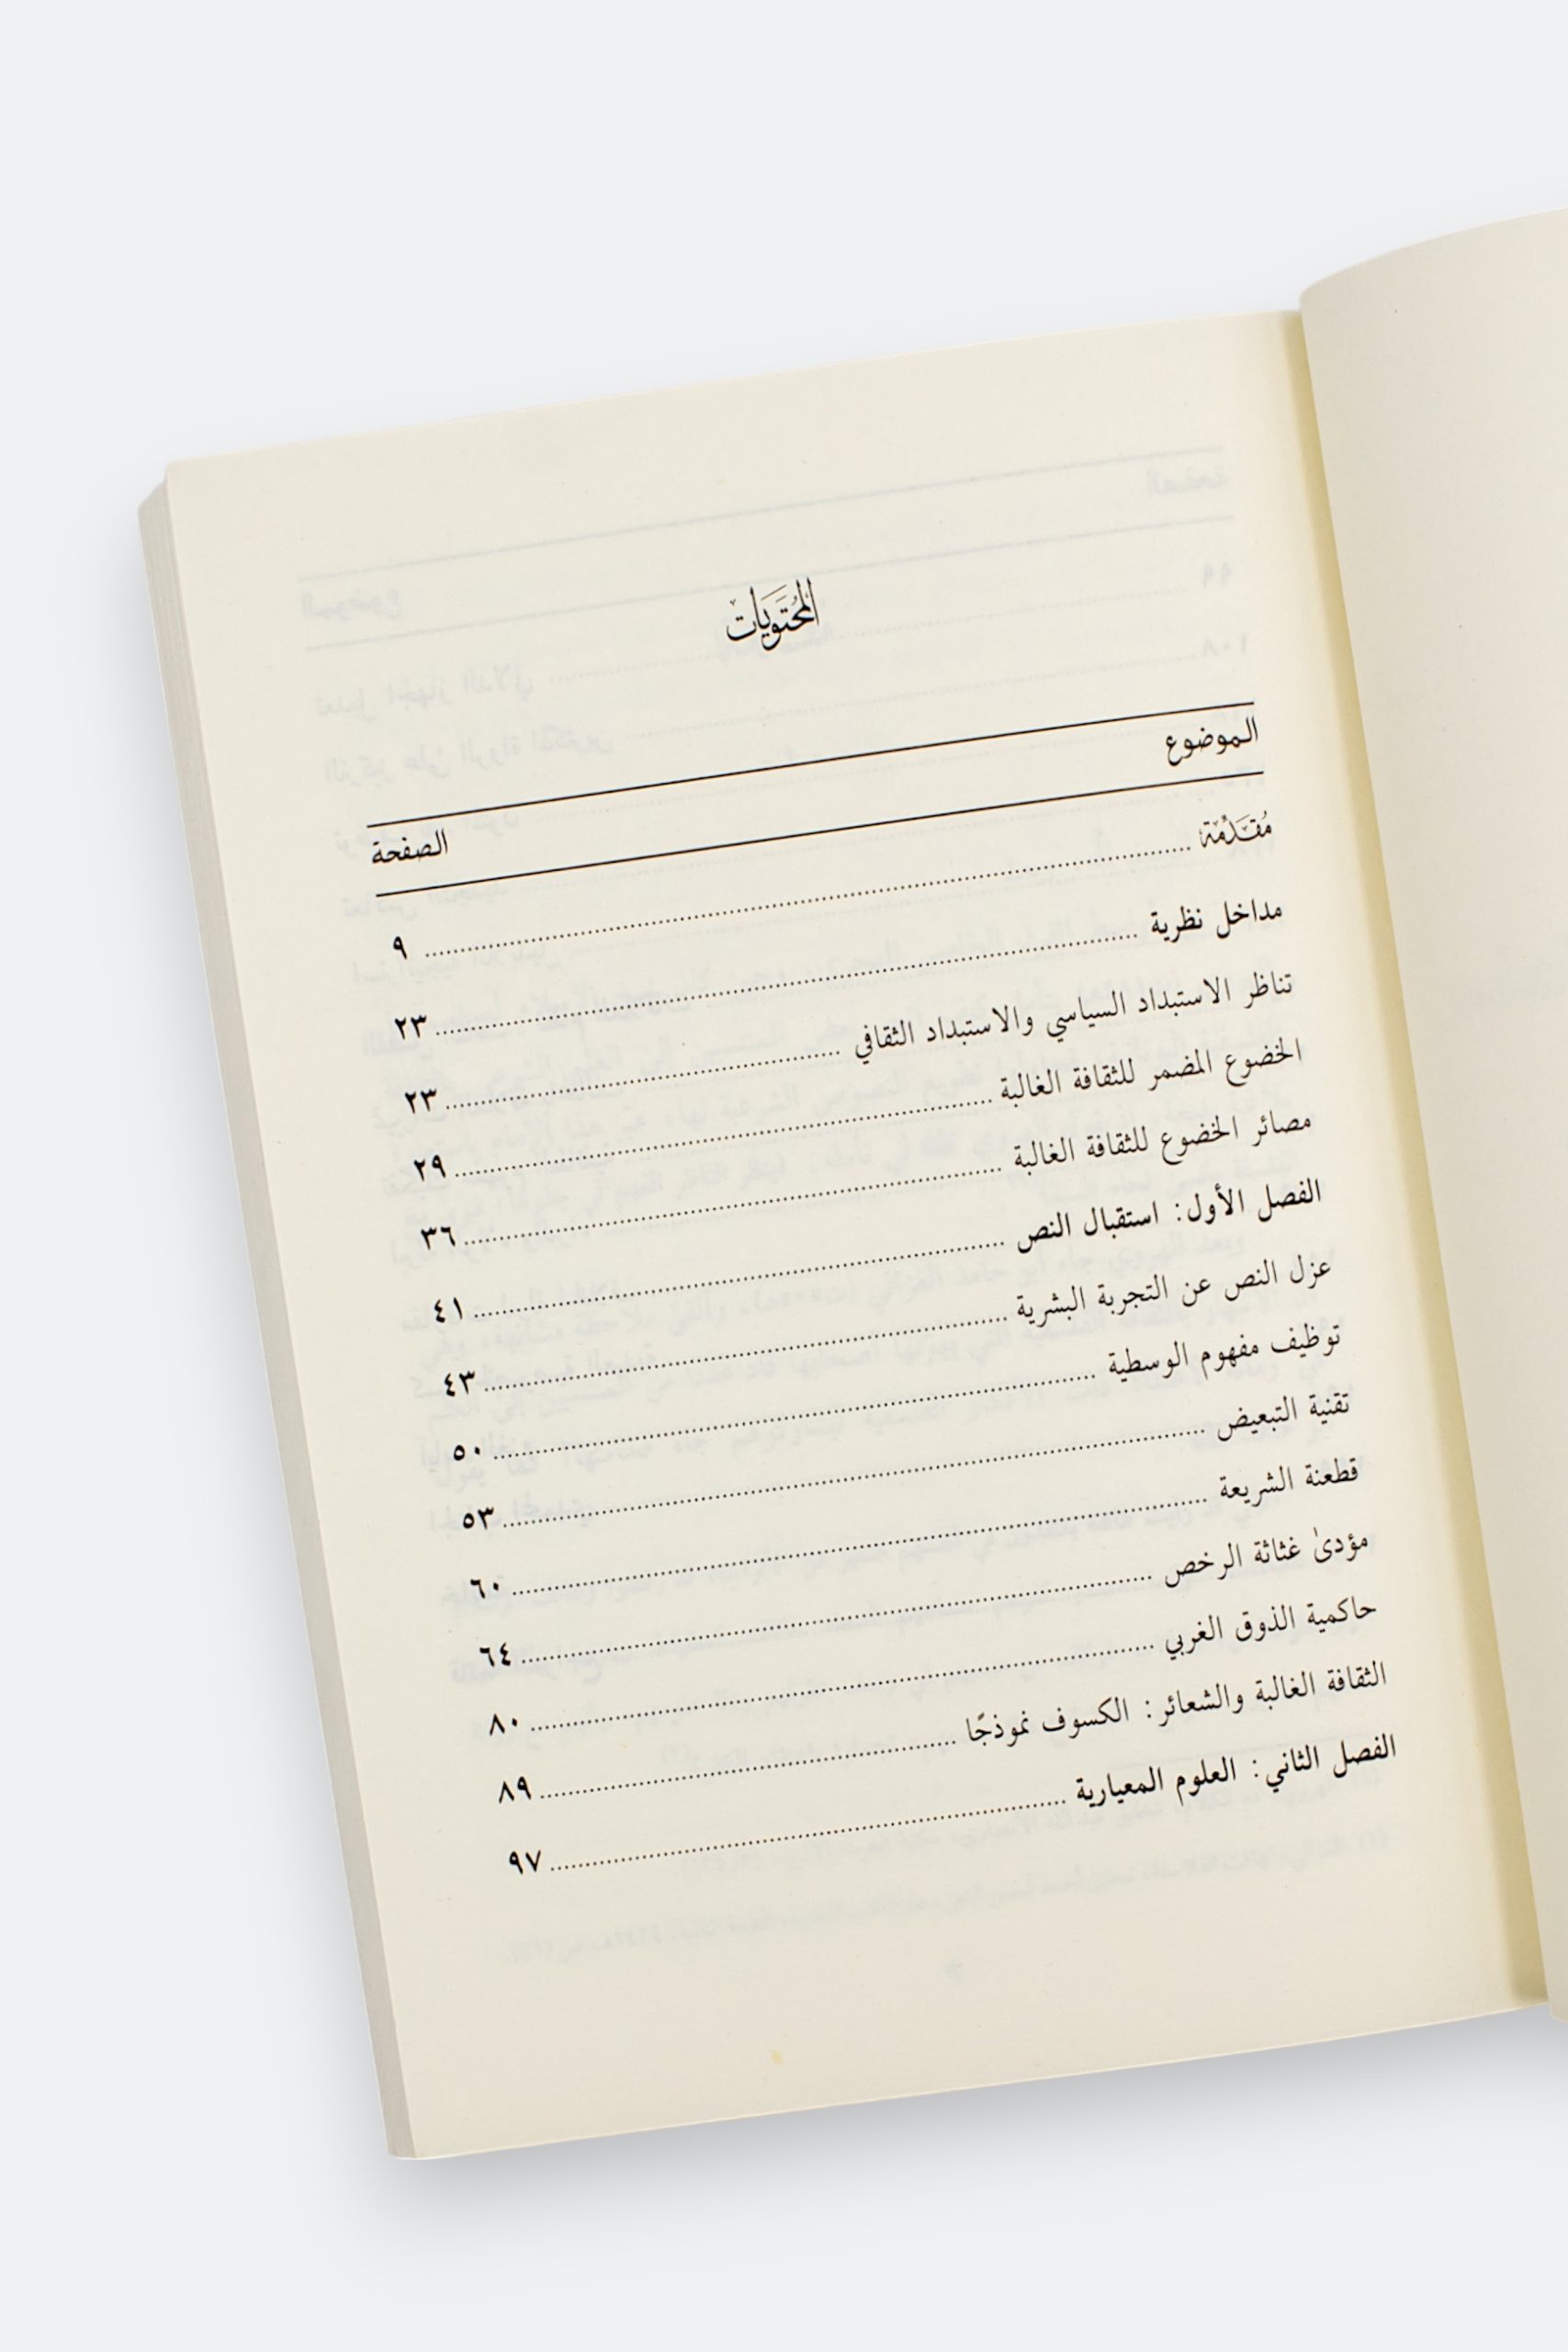 المُحتَوَيات
الموضوع الصفحة
مُقَدِّمَة ٩
مداخل نظرية ٢٣
تناظر الاستبداد السياسي والاستبداد الثقافي ٢٣
الخضوع المضمر للثقافة الغالبة ٢٩
مصائر الخضوع للثقافة الغالبة ٣٦
الفصل الأول: استقبال النص ٤١
عزل النص عن التجربة البشرية ٤٣
توظيف مفهوم الوسطية ٥٠
تقنية التبعيض ٥٣
قطعنة الشريعة ٦٠
مؤدىٰ غثاثة الرخص ٦٤
حاكمية الذوق الغربي ٨٠
الثقافة الغالبة والشعائر: الكسوف نموذجًا ٨٩
الفصل الثاني: العلوم المعيارية ٩٧